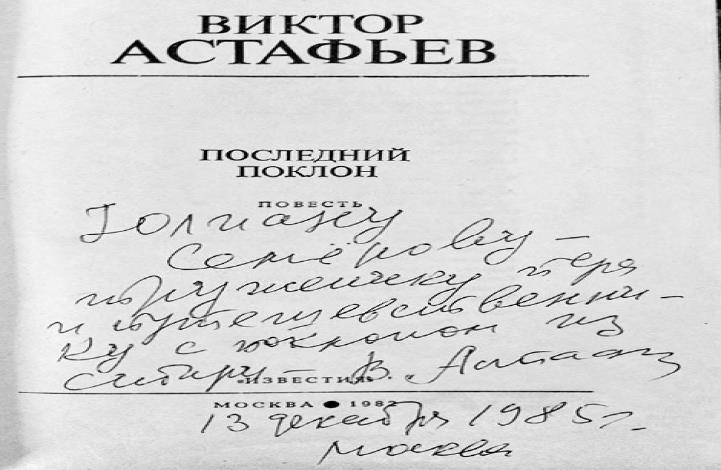 ВИКТОР
АСТАФЬЕВ
ПОСЛЕДНИЙ
ПОКЛОН
ПОВЕСТЬ
Юлиану
Семёрову –
труженику пера
и путешественни–
ку с поклоном из
Сибири – В. Астафьев
«ИЗВЕСТИЯ»
МОСКВА ● 1982
13 декабря 1985 г.
Москва